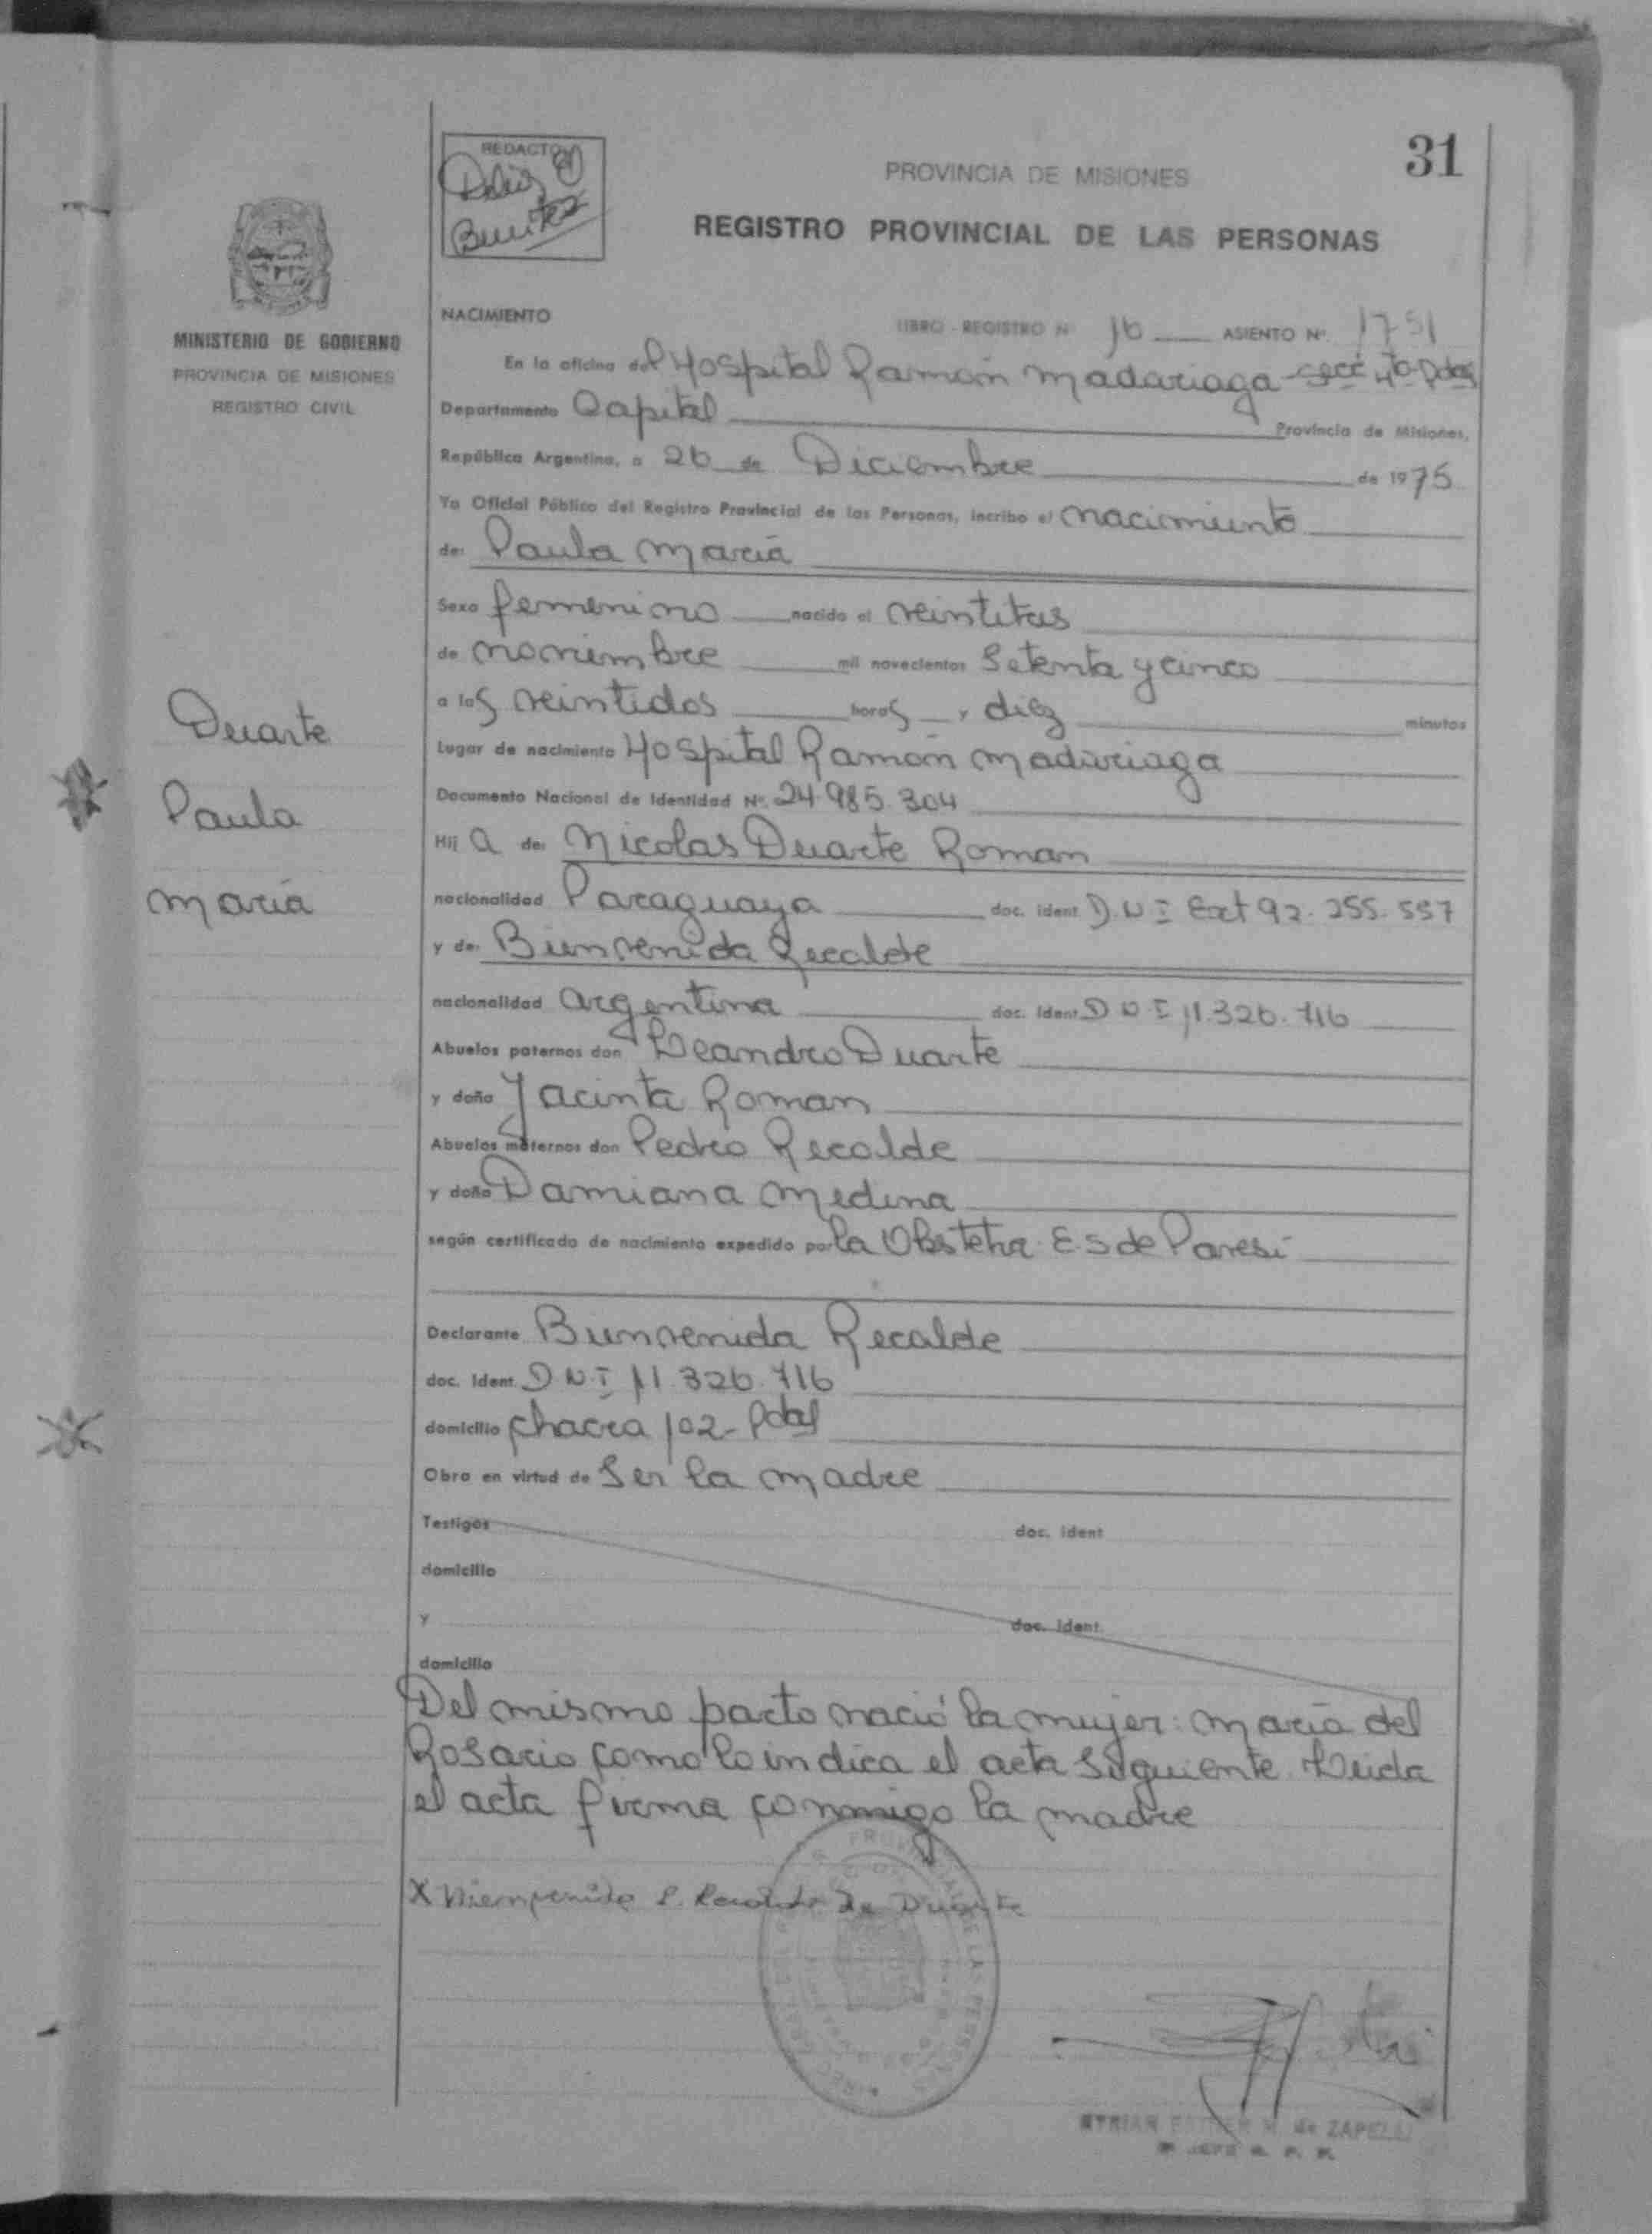 31
REDACTOR
Benitez
PROVINCIA DE MISIONES
REGISTRO PROVINCIAL DE LAS PERSONAS
MINISTERIO DE GOBIERNO
PROVINCIA DE MISIONES
REGISTRO CIVIL
NACIMIENTO
LIBRO - REGISTRO Nº 16 ASIENTO Nº. 1751
En la oficina del Hospital Ramón Madariaga secc 4ta Pdas
Departamento Capital Provincia de Misiones,
República Argentina, a 26 de Diciembre de 1975
Yo Oficial Público del Registro Provincial de las Personas, incribo el nacimiento
de: Paula María
Sexo femenino nacido el veintitres
de noviembre mil novecientos Setenta y cinco
a las veintidos horas y diez minutos
Lugar de nacimiento Hospital Ramón Madariaga
Documento Nacional de Identidad Nº. 24.985.304
Hij a de: Nicolas Duarte Roman
nacionalidad Paraguaya doc. ident D.N.I Ext 92.255.557
y de: Bienvenida Recalde
nacionalidad argentina doc. ident D N.I 11.326.716
Abuelos paternos don Leandro Duarte
y doña Jacinta Roman
Abuelos maternos don Pedro Recalde
y doña Damiana Medina
según certificado de nacimiento expedido por la Obstetra E.S de Paresi
Declarante Bienvenida Recalde
doc. Ident. D N.I 11.326.716
domicilio Chacra 102- Pdas
Obra en virtud de Ser la madre
Testigos doc. ident
domicilio
y doc. ident.
domicilio
Del mismo parto nació la mujer: María del
Rosario como lo indica el acta siguiente. Leida
el acta firma conmigo la madre
X Bienvenida R. Recalde de Duarte
de ZAPELLI
Duarte
Paula
María